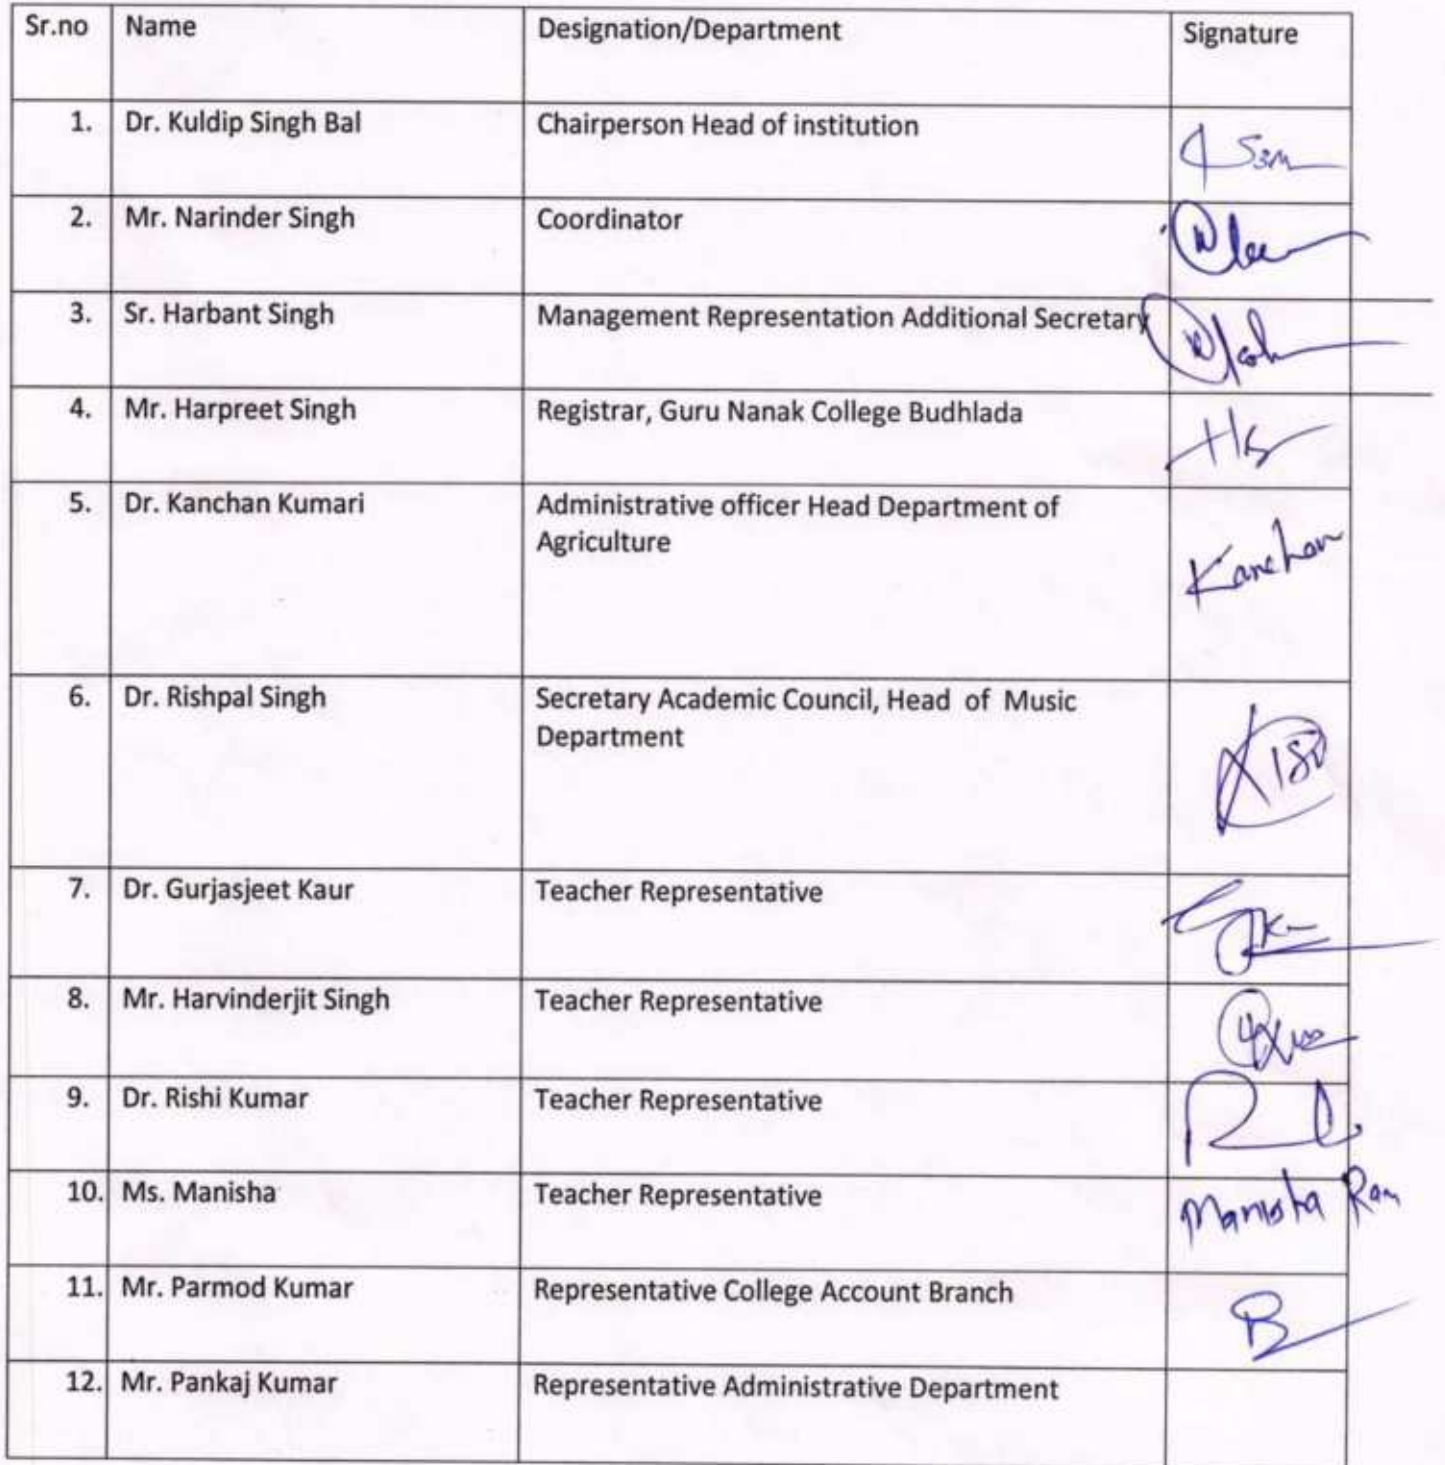 Sr.no Name Designation/Department Signature
1. Dr. Kuldip Singh Bal Chairperson Head of institution
2. Mr. Narinder Singh Coordinator
3. Sr. Harbant Singh Management Representation Additional Secretary
4. Mr. Harpreet Singh Registrar, Guru Nanak College Budhlada
5. Dr. Kanchan Kumari Administrative officer Head Department of
Agriculture
Kanchan
6. Dr. Rishpal Singh Secretary Academic Council, Head of Music
Department
7. Dr. Gurjasjeet Kaur Teacher Representative
8. Mr. Harvinderjit Singh Teacher Representative
9. Dr. Rishi Kumar Teacher Representative
10. Ms. Manisha Teacher Representative Manisha
11. Mr. Parmod Kumar Representative College Account Branch
12. Mr. Pankaj Kumar Representative Administrative Department